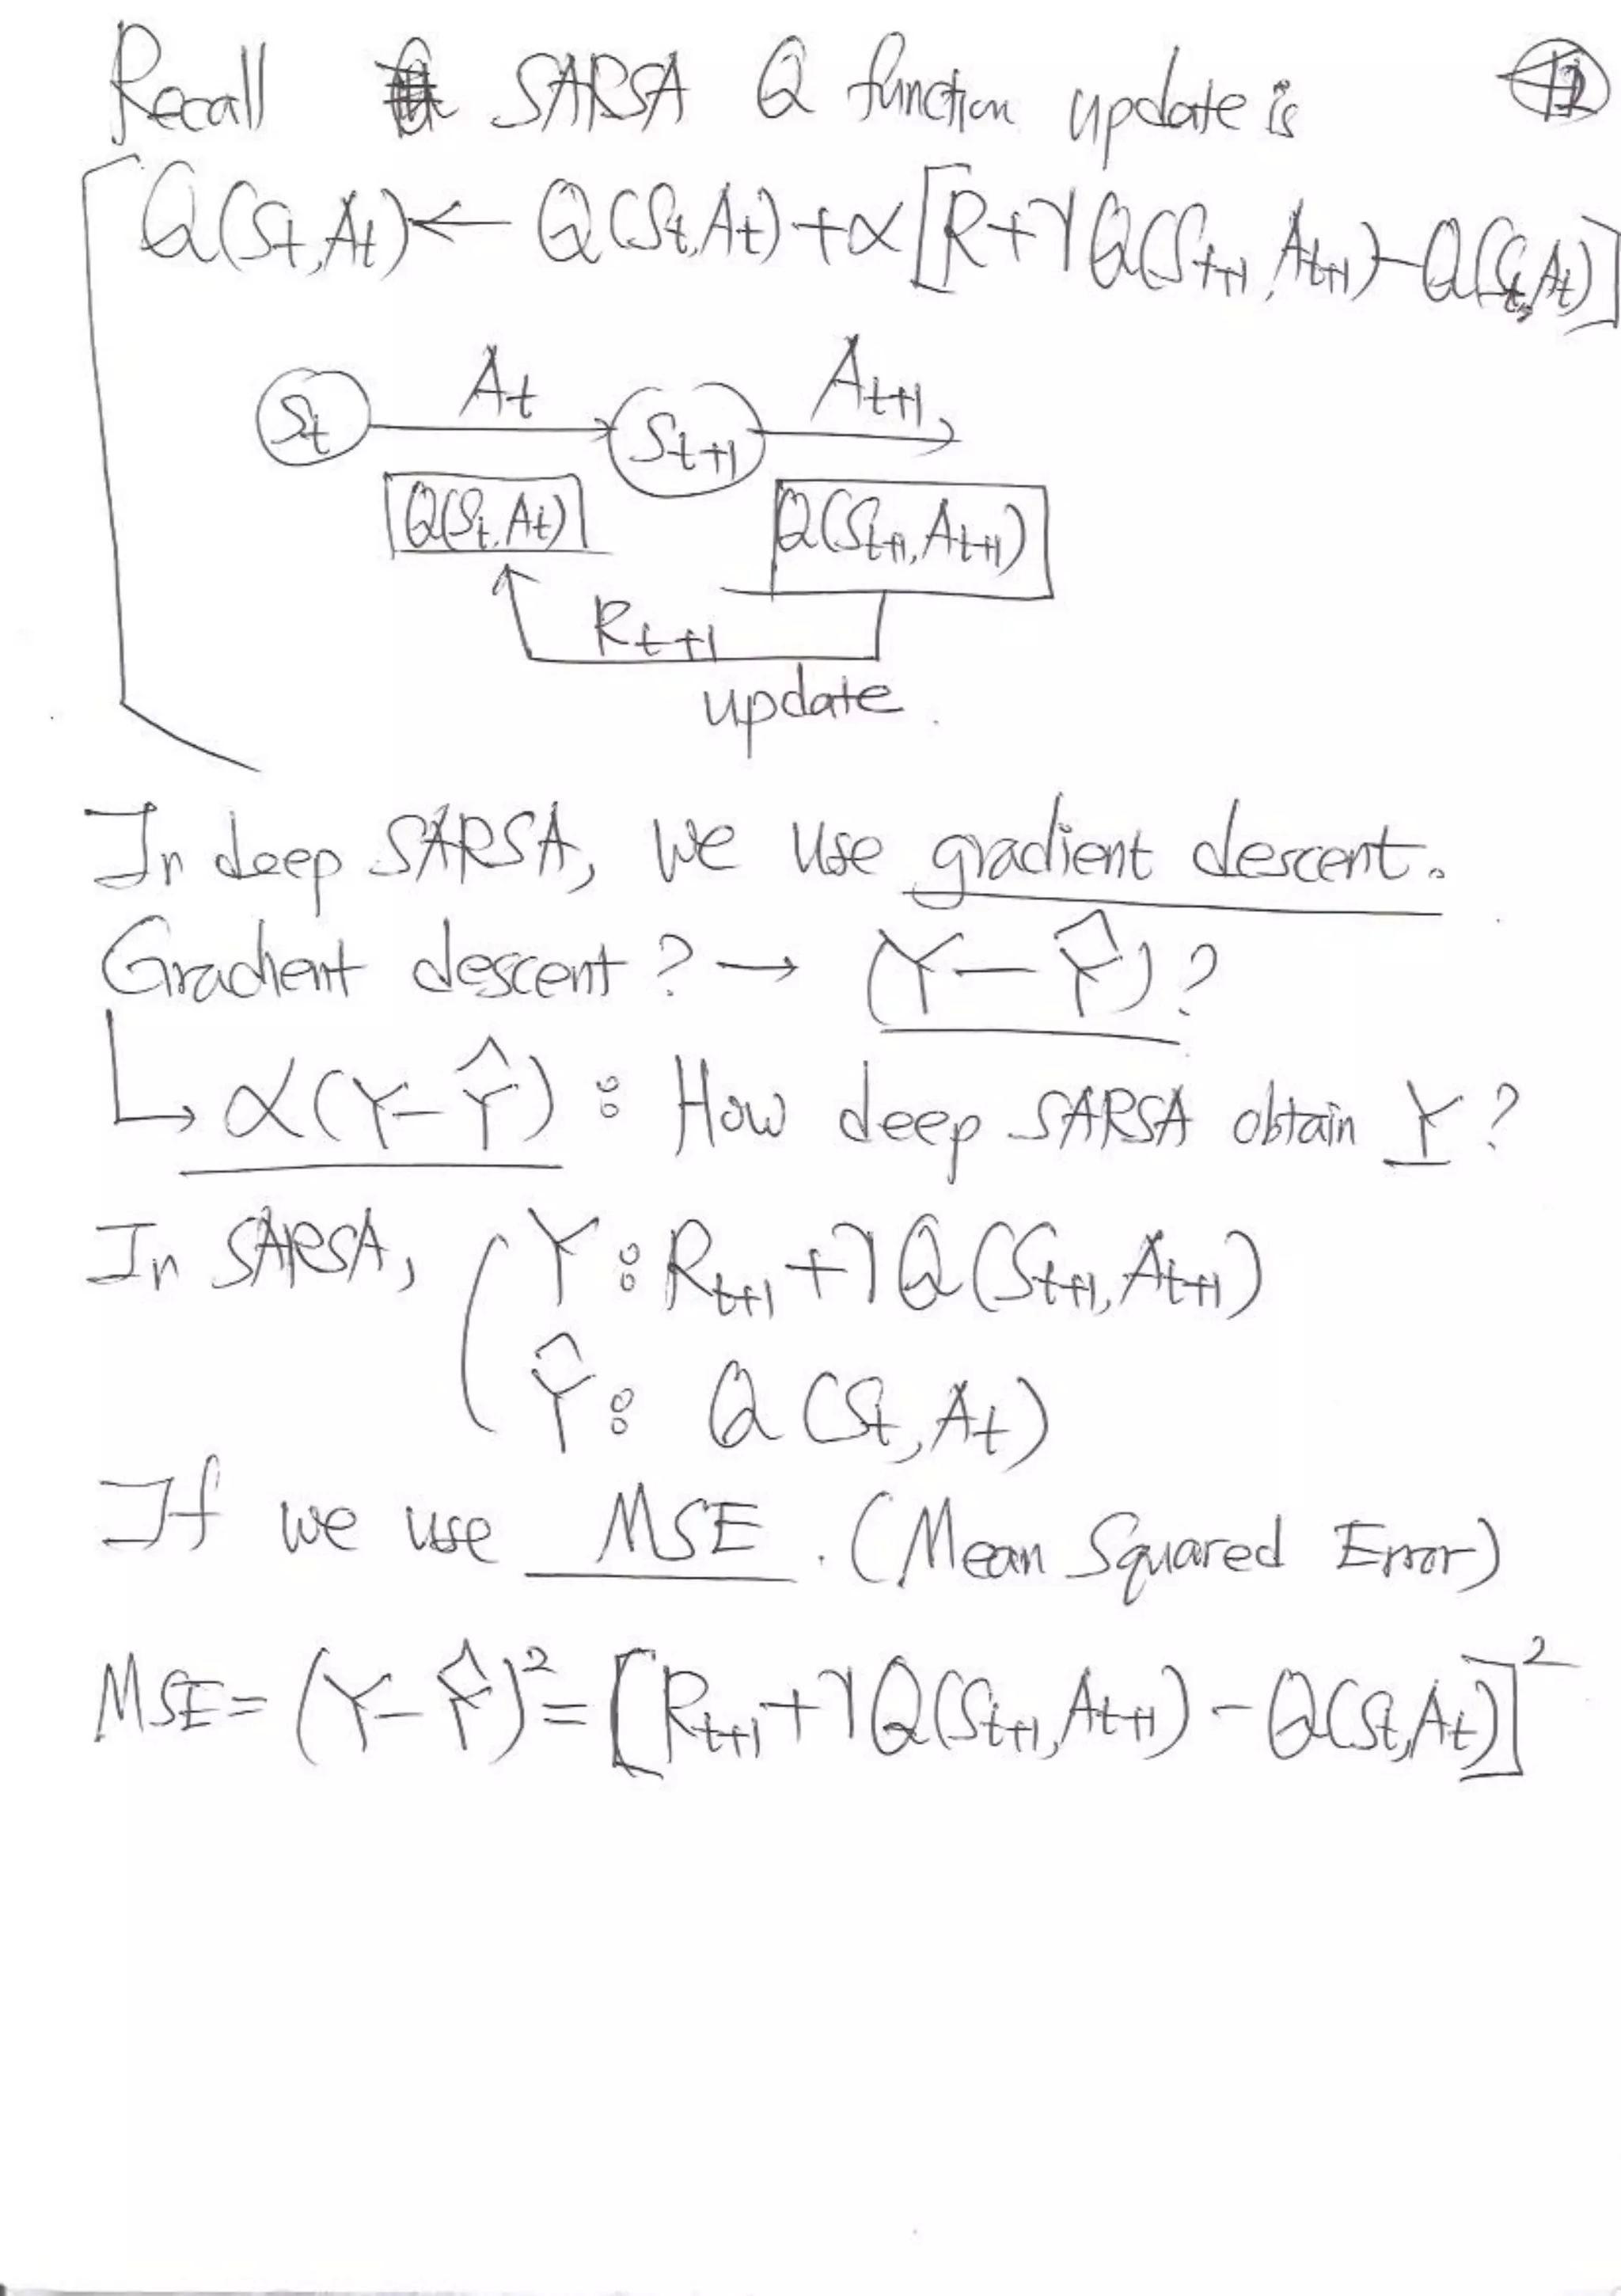 Recall SARSA Q function update is
Q(St,At) ← Q(St,At) + α[R+γQ(St+1,At+1)-Q(St,At)]
At At+1
St St+1
Q(St,At) Q(St+1,At+1)
Rt+1
update
In deep SARSA, we use gradient descent.
Gradient descent? → (Y-Ŷ)?
↳ α(Y-Ŷ) : How deep SARSA obtain Y?
In SARSA, ( Y : Rt+1+γQ(St+1,At+1)
Ŷ : Q(St,At)
If we use MSE. (Mean Squared Error)
MSE = (Y-Ŷ)² = [Rt+1+γQ(St+1,At+1) - Q(St,At)]²